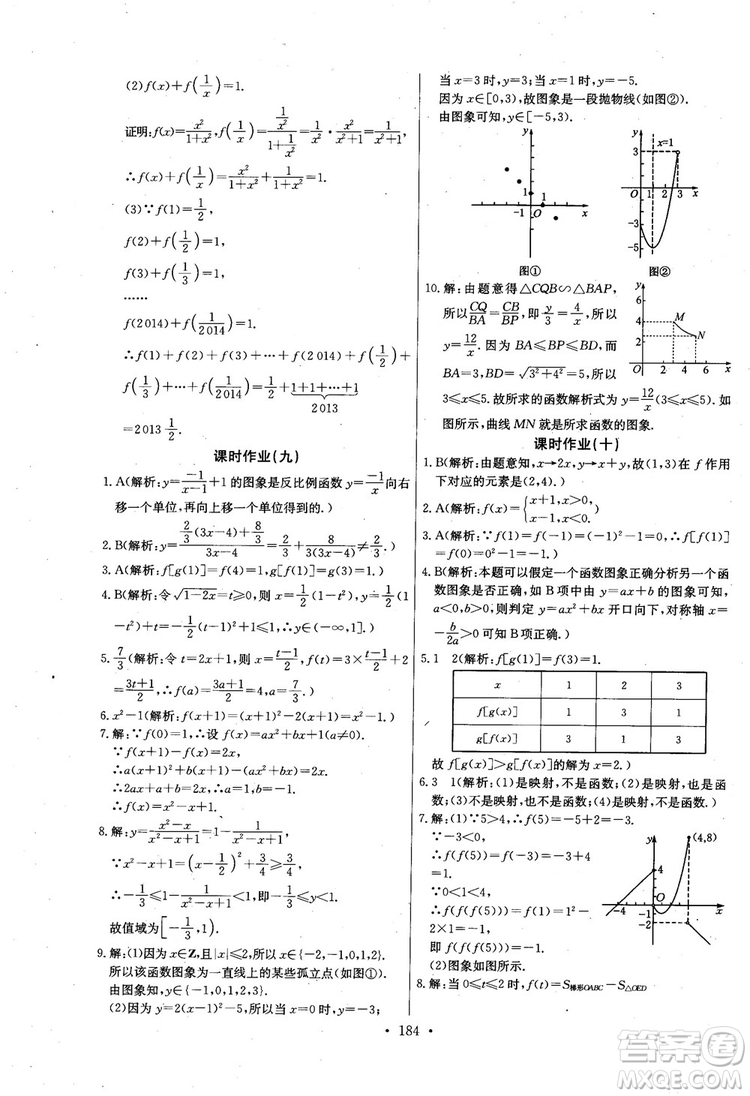 (2)f(x)+f(1/x)=1.
证明:f(x)=x²/(1+x²),f(1/x)=(1/x²)/(1+1/x²)=1/(1+x²)·x²/x²,
∴f(x)+f(1/x)=x²/(1+x²)+1/(1+x²)=1.
(3)∵f(1)=1/2,
f(2)+f(1/2)=1,
f(3)+f(1/3)=1,
……
f(2014)+f(1/2014)=1.
∴f(1)+f(2)+f(3)+…+f(2014)+f(1/2)+
f(1/3)+…+f(1/2014)=1/2+1+1+…+1
2013
=2013 1/2.
课时作业(九)
1. A(解析:y=-1/(x-1)+1的图象是反比例函数y=-1/x向右
移一个单位,再向上移一个单位得到的.)
2. B(解析:y=(2/3(3x-4)+8/3)/(3x-4)=2/3+8/(3(3x-4))≠2/3.)
3. A(解析:∴f[g(1)]=f(4)=1,g[f(3)]=g(1)=4.)
4. B(解析:令√(1-2x)=t≥0,则x=1/2(1-t²),y=1/2(1
-t²)+t=-1/2(t-1)²+1≤1,∴(-∞,1].)
5. 7/3(解析:令t=2x+1,则x=(t-1)/2,f(t)=3×(t-1)/2+2
=(3t+1)/2,∴f(a)=(3a+1)/2=4,a=7/3.)
6. x²-1(解析:f(x+1)=(x+1)²-2(x+1)=x²-1.)
7. 解:∵f(0)=1,∴设f(x)=ax²+bx+1(a≠0).
∵f(x+1)-f(x)=2x,
∴a(x+1)²+b(x+1)+1-(ax²+bx+1)=2x.
∴2ax+a+b=2x.∴a=1,b=-1.
∴f(x)=x²-x+1.
8. 解:y=(x²-x)/(x²-x+1)=1-1/(x²-x+1),
∵x²-x+1=(x-1/2)²+3/4≥3/4,
∴-1/3≤1-1/(x²-x+1)<1,∴-1/3≤y<1.
故值域为[-1/3,1).
9. 解:(1)因为x∈Z,且|x|≤2,所以x∈{-2,-1,0,1,2}.
所以该函数图象为一直线上的某些孤立点(如图①).
由图象知,y∈{-1,0,1,2,3}.
(2)因为y=2(x-1)²-5,所以当x=0时,y=-3;
当x=3时,y=3;当x=1时,y=-5.
因为x∈[0,3),故图象是一段抛物线(如图②).
由图象可知,y∈[-5,3).
y 1 1 -1 O x
图①
y x=1 3 O 1 2 3 x -3 -5
图②
10. 解:由题意得△CQB∽△BAP,
所以CQ/BA=CB/BP,即y/3=4/x,所以
y=12/x.因为BA≤BP≤BD,而
BA=3,BD=√(3²+4²)=5,所以
3≤x≤5.故所求的函数解析式为y=12/x(3≤x≤5).如
图所示,曲线MN就是所求函数的图象.
y 6 4 2 O 2 4 6 x M N
课时作业(十)
1. B(解析:由题意知,x→2x,y→x+y;故(1,3)在f作用
下对应的元素是(2,4).)
2. A(解析:f(x)={x+1,x>0;x-1,x<0.)
3. A(解析:∵f(1)=f(-1)=(-1)²-1=0,∴f[f(1)]
=f(0)=0²-1=-1.)
4. B(解析:本题可以假定一个函数图象正确分析另一个函
数图象是否正确,如B项中由y=ax+b的图象可知,
a<0,b>0,则判定y=ax²+bx开口向下,对称轴x=
-b/2a>0可知B项正确.)
5. 1 2(解析:f[g(1)]=f(3)=1.
x 1 2 3
f[g(x)] 1 3 1
g[f(x)] 3 1 3
故f[g(x)]>g[f(x)]的解为x=2.)
6. 3 1(解析:(1)是映射,不是函数;(2)是映射,也是函
数;(3)不是映射,也不是函数;(4)是映射,不是函数.)
7. 解:(1)∵5>4,∴f(5)=-5+2=-3.
∵-3<0,
∴f(f(5))=f(-3)=-3+4
=1.
∵0<1<4,
∴f(f(f(5)))=f(1)=1²-
2×1=-1,
即f(f(f(5)))=-1.
(2)图象如图所示.
y (4,8) 4 -4 O x -2
8. 解:当0≤t≤2时,f(t)=S梯形OABC-S△OED
• 184 •
答案圈